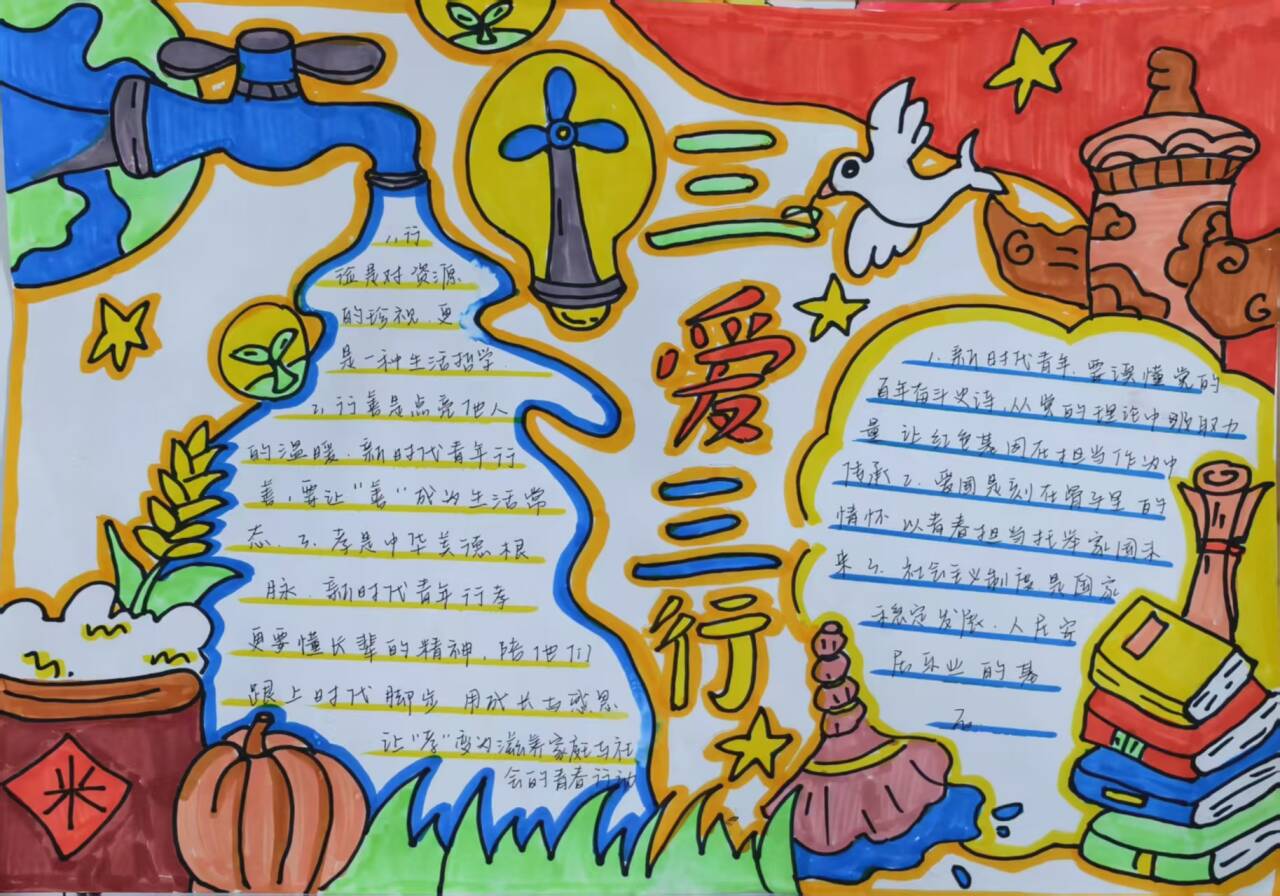 三爱三行
1.行
俭是对资源
的珍视.更
是一种生活哲学.
2.行善是点亮他人
的温暖.新时代青年行
善,要让"善"成为生活常
态.3.孝是中华美德根
脉.新时代青年行孝
更要懂长辈的精神,陪他们
跟上时代脚步 用成长与感恩
让"孝"变为滋养家庭与社
会的青春行动
1.新时代青年.要读懂党的
百年奋斗史诗,从党的理论中吸取力
量 让红色基因在担当作为中
传承2.爱国是刻在骨子里的
情怀 以青春担当托举家国未
来3.社会主义制度是国家
稳定发展.人民安
居乐业的基
石.
米